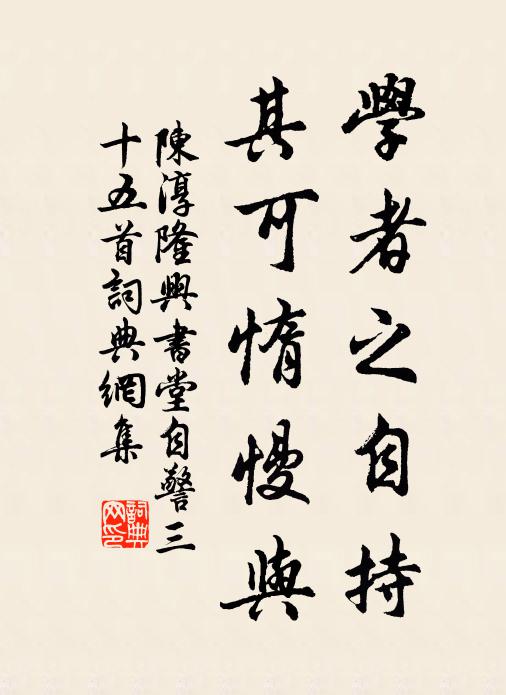 學者之自持
其可惰慢與
陳淳隆興書堂自警三
十五首詞典網集
詞典网印